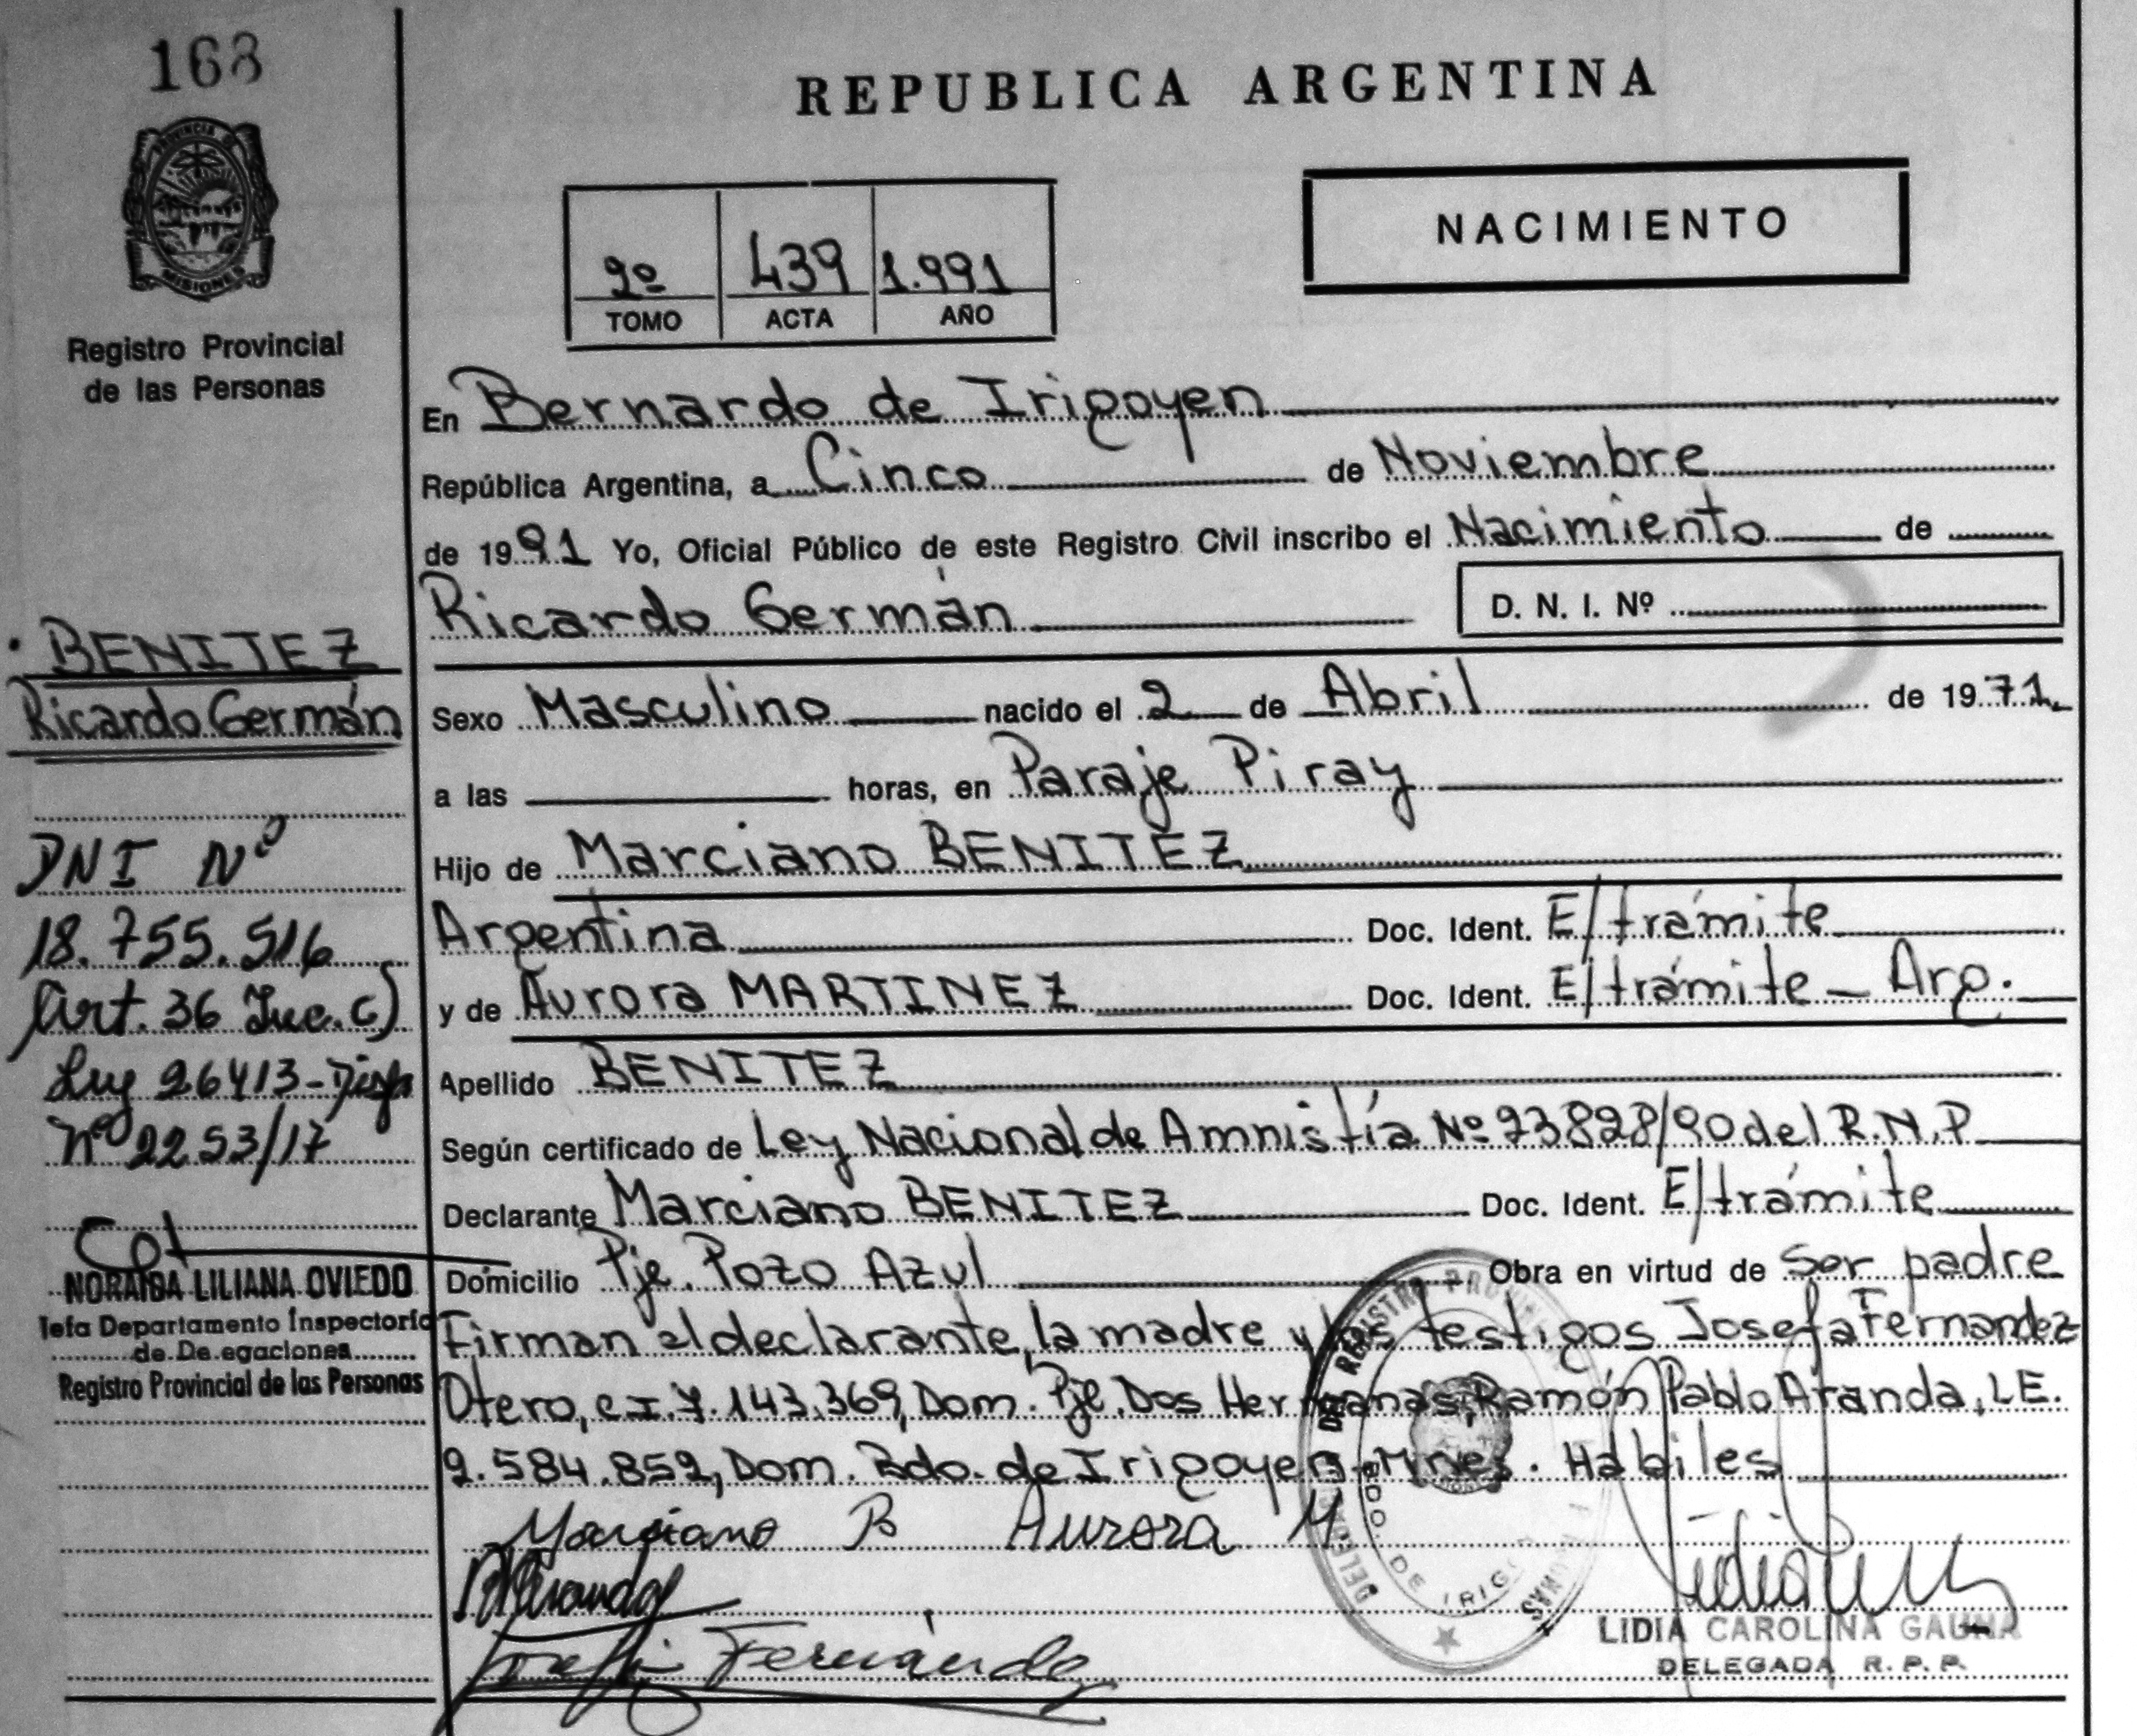 168
PROVINCIA DE
MISIONES
Registro Provincial
de las Personas
REPUBLICA ARGENTINA
2º 439 1.991
TOMO ACTA AÑO
NACIMIENTO
En Bernardo de Irigoyen
República Argentina, a Cinco de Noviembre
de 1991 Yo, Oficial Público de este Registro Civil inscribo el Nacimiento de
Ricardo Germán
D. N. I. Nº
Sexo Masculino nacido el 2 de Abril de 1971
a las horas, en Paraje Piray
Hijo de Marciano BENITEZ
Argentina Doc. Ident. E/trámite
y de Aurora MARTINEZ Doc. Ident. E/trámite - Arg.
Apellido BENITEZ
Según certificado de Ley Nacional de Amnistía Nº 23828/90 del R.N.P
Declarante Marciano BENITEZ Doc. Ident. E/trámite
Domicilio Pje. Pozo Azul Obra en virtud de ser padre
Firman el declarante, la madre y los testigos Josefa Fernandez
Otero, C.I. 7.143.369, Dom. Pje. Dos Hermanas, Ramón Pablo Aranda, L.E.
2.584.852, Dom. Bdo. de Irigoyen - Mnes. Hábiles
Marciano B Aurora M.
Josefa Fernández
LIDIA CAROLINA GAUNA
DELEGADA R. P. P.
BENITEZ
Ricardo Germán
DNI Nº
18.755.516
Art. 36 Inc. c)
Ley 26413 - Disp
Nº 2253/17
NORAIDA LILIANA OVIEDO
Jefa Departamento Inspectoría
de Delegaciones
Registro Provincial de las Personas